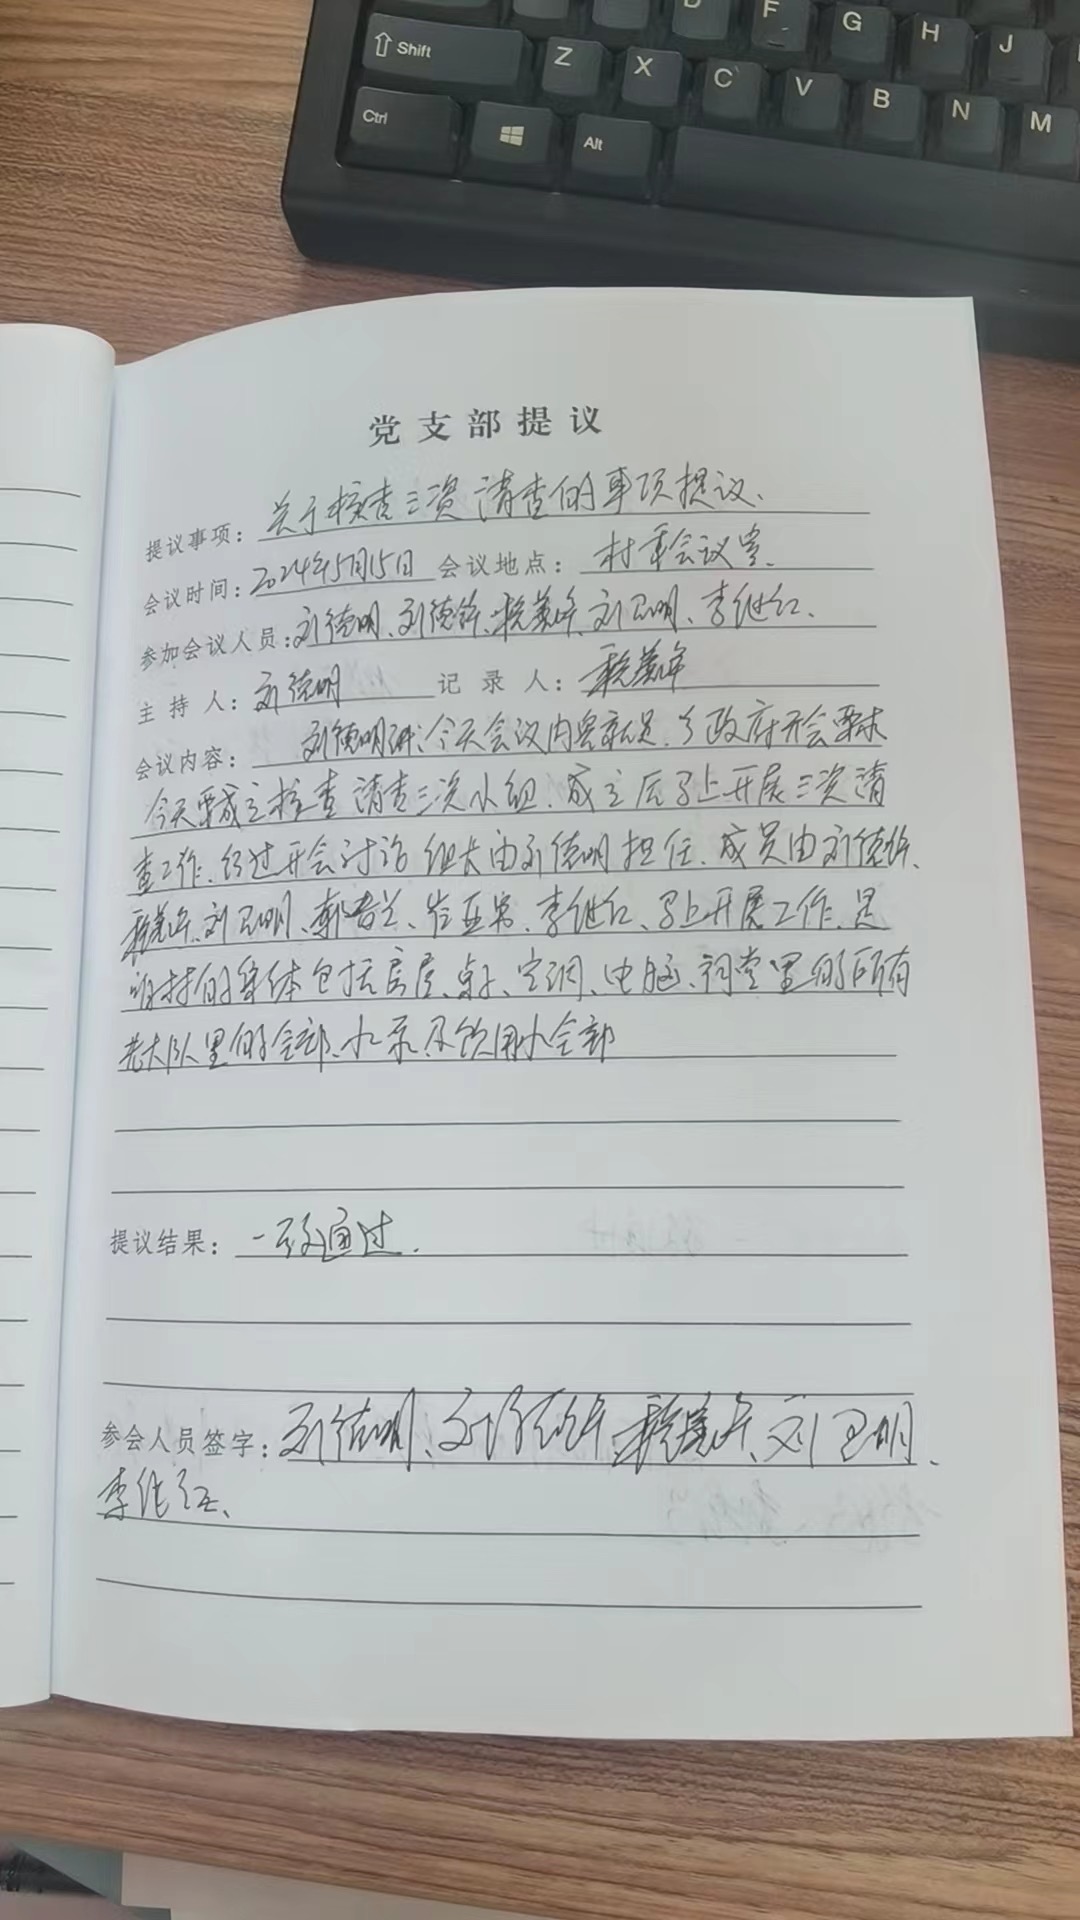 D F G H J
Shift Z X C V B N M
Ctrl Alt
党支部提议
提议事项：关于核查三资清查的事项提议、
会议时间：2024年5月15日 会议地点：村委会议室、
参加会议人员：刘德明、刘德钦、刘卫明、李继红、
主持人：刘德明 记录人：
会议内容：刘德明讲：今天会议内容就是、乡政府开会要求
今天要成立核查清查三资小组、成立后马上开展三资清
查工作、经过开会讨论组长由刘德明担任、成员由刘德钦、
刘卫明、郭香兰、李继红、马上开展工作、是
的集体包括房屋、桌子、空调、电脑、祠堂里的所有
老大队里的全部、水泵及饮用水全部
提议结果：一致通过.
参会人员签字：刘德明、刘德钦、刘卫明、
李继红、